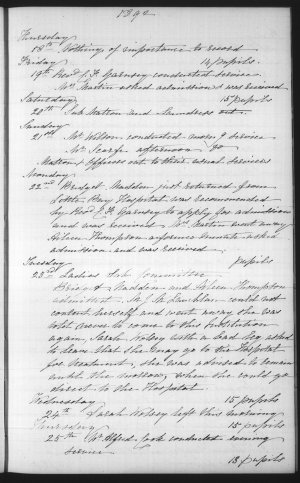 1892
Thursday
18th Nothing of importance to record
Friday 14 pupils
19th Revd C. F. Garnsey conducted service
Mrs Martin asked admission & was received
Saturday 15 pupils
20th Sub Matron and Laundress out.
Sunday
21st Mr Wilson conducted morng service
Mr Scarfe afternoon do
Matron & officers out to their usual services
Monday
22nd Bridget Madden just returned from
Little Bay Hospital was recommended
by Revd C. F. Garnsey to apply for admission
and was received Mrs Martin went away
Aileen Thompson a former inmate asked
admission and was received
Tuesday pupils
23rd Ladies Sub Committee
Madden and Aileen Thompson
admitted. could not
content herself and went away she was
told never to come to this Institution
again. Sarah Kelsey with a bad leg asked
to leave that she may go to the Hospital
for treatment, she was advised to remain
until the morrow, when she could go
direct to the Hospital
Wednesday 15 pupils
24th Sarah Kelsey left this morning
Thursday 15 pupils
25th Mr Alfred Cook conducted evening
service
13 pupils